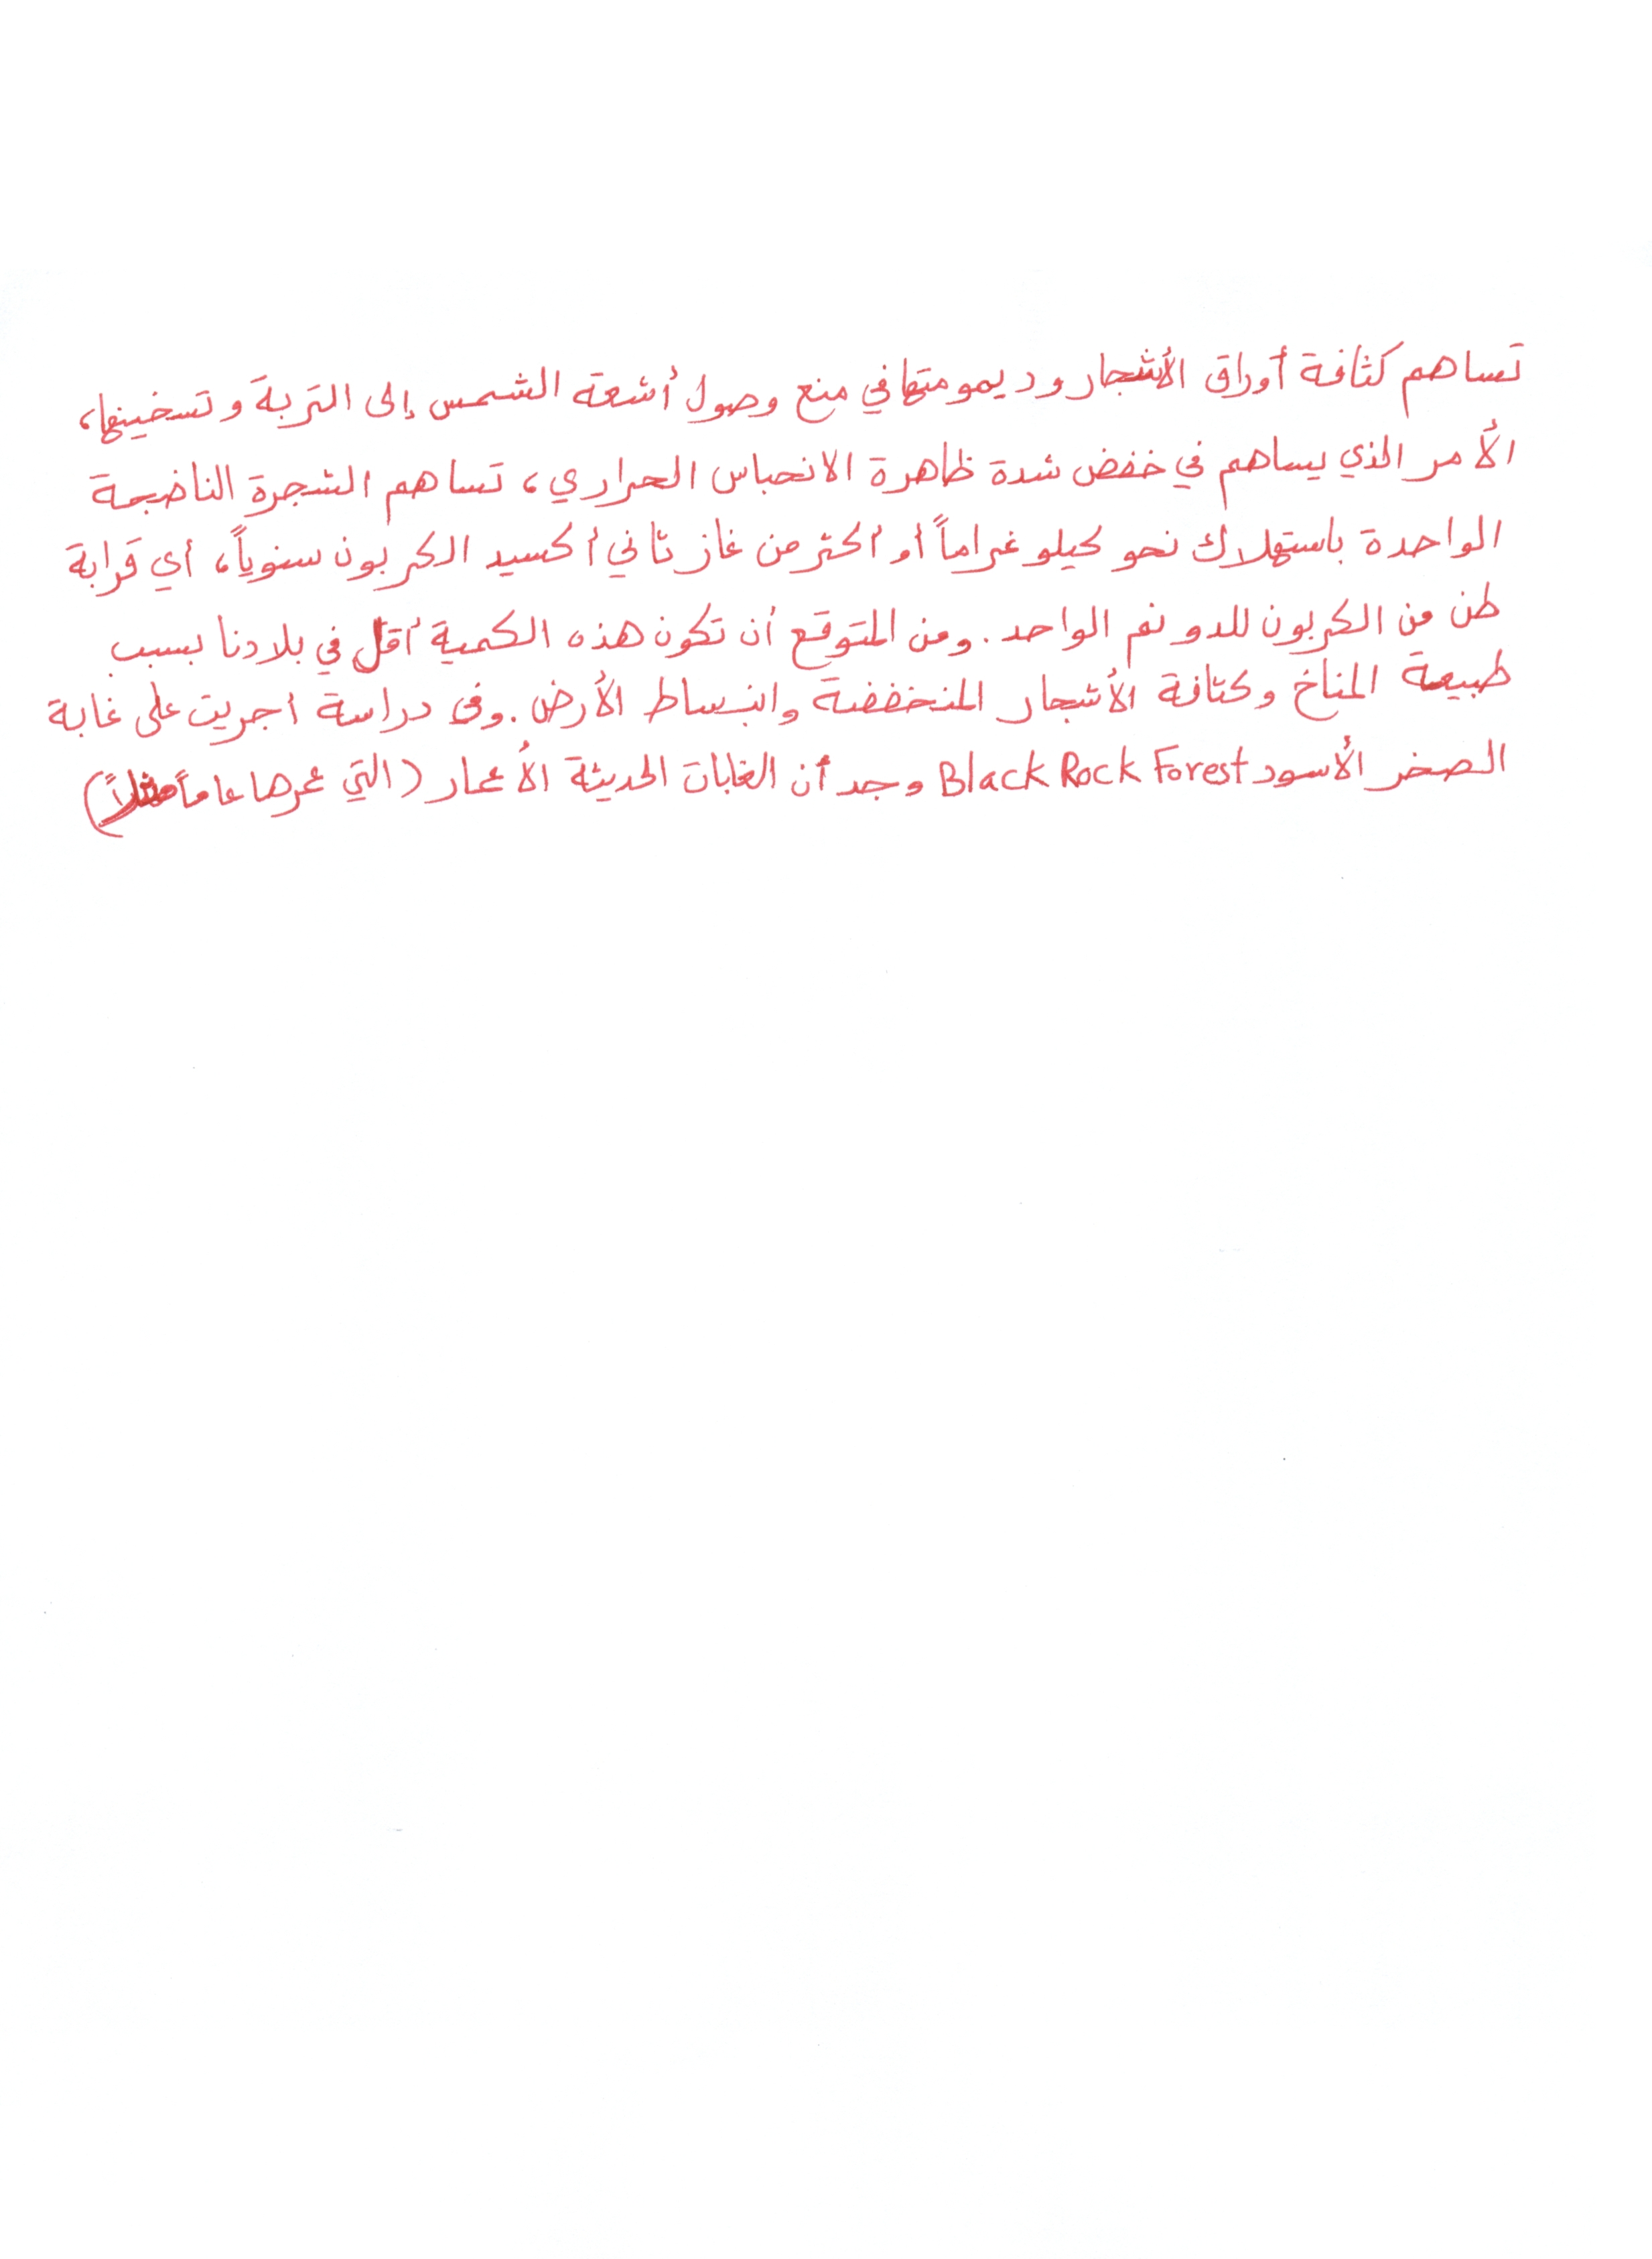 تساهم كثافة أوراق الأشجار وديمومتها في منع وصول أشعة الشمس إلى التربة وتسخينها،
الأمر الذي يساهم في خفض شدة ظاهرة الانحباس الحراري، تساهم الشجرة الناضجة
الواحدة باستهلاك نحو كيلو غراماً أو أكثر من غاز ثاني أكسيد الكربون سنوياً، أي قرابة
طن من الكربون للدونم الواحد. ومن المتوقع أن تكون هذه الكمية أقل في بلادنا بسبب
طبيعة المناخ وكثافة الأشجار المنخفضة وانبساط الأرض. وفي دراسة أجريت على غابة
الصخر الأسود Black Rock Forest وجد أن الغابات الحديثة الأعمار (التي عمرها عاماً مثلاً)